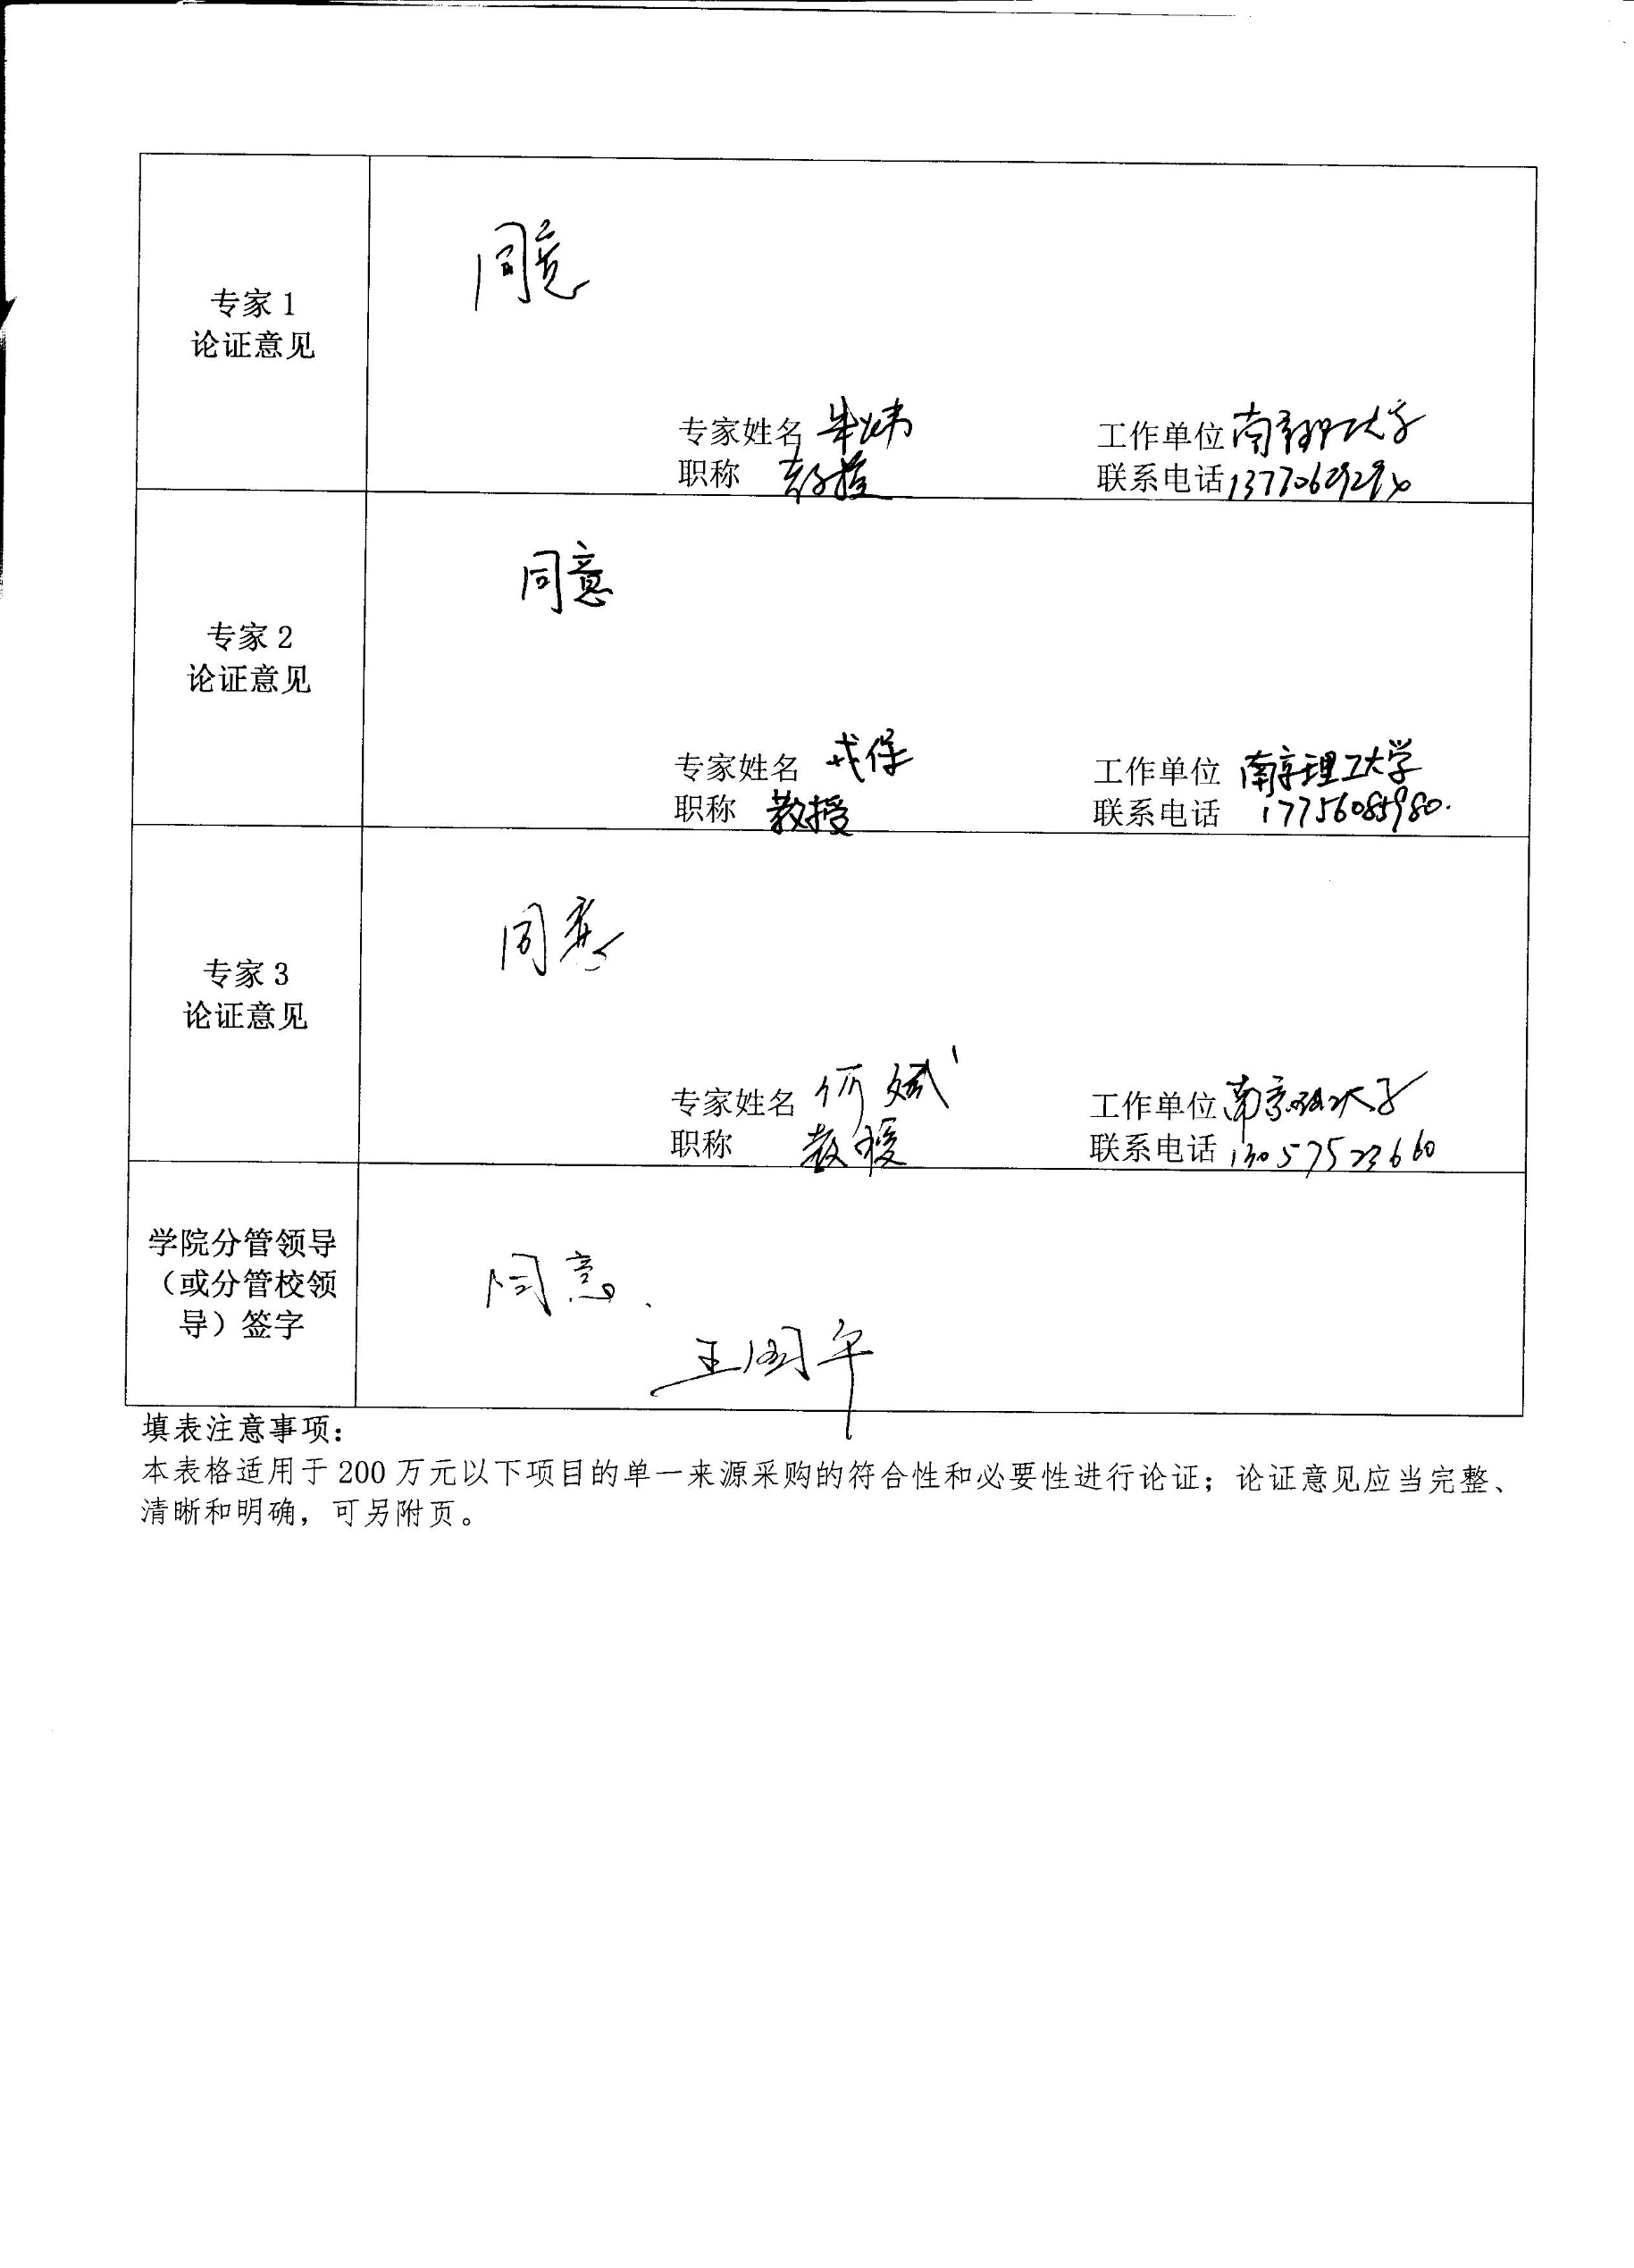 同意
专家1
论证意见
专家姓名 朱炜 工作单位 南京理工大学
职称 教授 联系电话
同意
专家2
论证意见
专家姓名 戎保 工作单位 南京理工大学
职称 教授 联系电话 17756085980.
同意
专家3
论证意见
专家姓名 何斌 工作单位 南京理工大学
职称 教授 联系电话 13057523660
学院分管领导
（或分管校领
导）签字
同意.
王国平
填表注意事项：
本表格适用于 200 万元以下项目的单一来源采购的符合性和必要性进行论证；论证意见应当完整、
清晰和明确，可另附页。